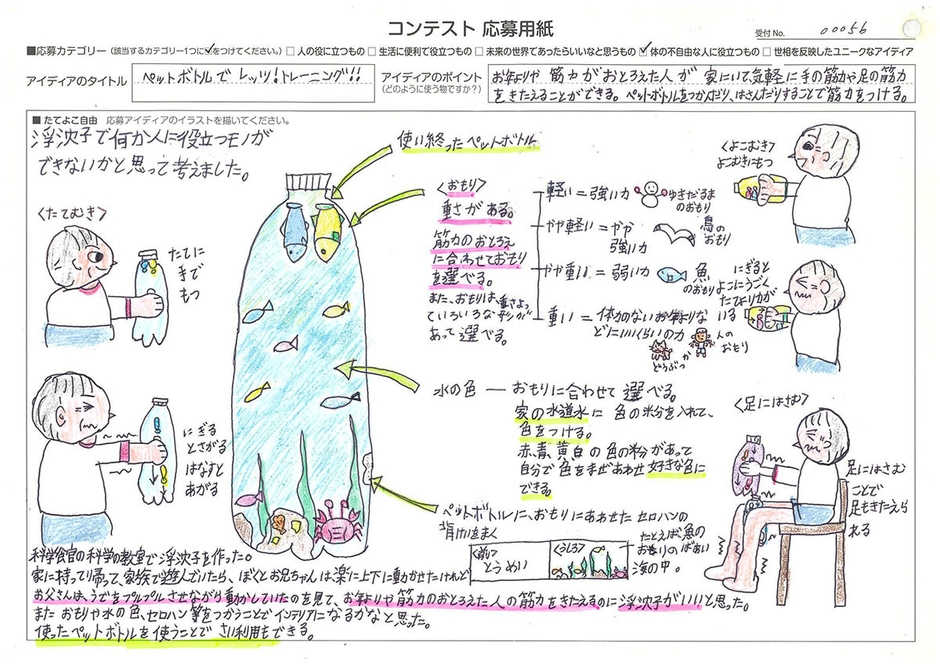 コンテスト 応募用紙
受付 No. 00056
■応募カテゴリー（該当するカテゴリー1つに✓をつけてください。）□人の役に立つもの □生活に便利で役立つもの □未来の世界であったらいいなと思うもの ☑体の不自由な人に役立つもの □世相を反映したユニークなアイディア
アイディアのタイトル
ペットボトルでレッツ！トレーニング!!
アイディアのポイント
（どのように使う物ですか？）
お年よりや 筋力がおとろえた人が 家にいて気軽に手の筋力や足の筋力
をきたえることができる。ペットボトルをつかんだり、はさんだりすることで筋力をつける。
■たてよこ自由 応募アイディアのイラストを描いてください。
浮沈子で何か人に役立つモノが
できないかと思って考えました。
使い終ったペットボトル
<おもり>
重さがある。
筋力のおとろえ
に合わせておもり
を選べる。
また、おもりは、重さよって
いろいろな形が
あって選べる。
軽い＝強い力
ゆきだるま
のおもり
やや軽い＝やや
強い力
鳥の
おもり
やや重い＝弱い力
魚
のおもり
重い＝体力のないお年よりな
どにいいくらいの力
どうぶつ
か
人の
おもり
<よこむき>
よこむきにもつ
にぎると
よこにうごく
たてよりか
いる
<たてむき>
たてに
まで
もつ
にぎる
とさがる
はなすと
あがる
水の色 ― おもりに合わせて選べる。
家の水道水に 色の粉を入れて、
色をつける。
赤、青、黄、白の色の粉があって
自分で色をまぜあわせ好きな色に
できる。
<足にはさむ>
足にはさむ
ことで
足もきたえら
れる
ペットボトルに、おもりにあわせた セロハンの
背けいをまく
<前>
とうめい
<うしろ>
たとえば、魚の
おもりのばあい
海の中。
科学食官の科学の教室で浮沈子を作った。
家に持って帰って、家族で遊んでいたら、ぼくとお兄ちゃんは、楽に上下に動かせたけれど
お父さんは、うでをプルプルさせながら動かしていたのを見て、お年よりや筋力のおとろえた人の筋力をきたえるのに浮沈子がいいと思った。
また おもりや水の色、セロハン等をつかうことでインテリアになるかなと思った。
使ったペットボトルを使うことで さい利用もできる。